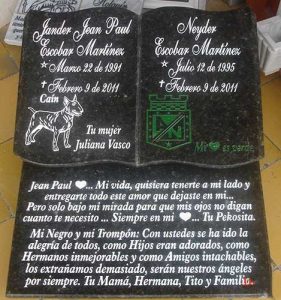 Jander Jean Paul
Escobar Martínez
Marzo 22 de 1991
Febrero 9 de 2011
Caín
Tu mujer
Juliana Vasco
Neyder
Escobar Martínez
Julio 12 de 1995
Febrero 9 de 2011
Mi es verde
Jean Paul ... Mi vida, quisiera tenerte a mi lado y
entregarte todo este amor que dejaste en mi...
Pero solo bajo mi mirada para que mis ojos no digan
cuanto te necesito ... Siempre en mi ... Tu Pekosita.
Mi Negro y mi Trompón: Con ustedes se ha ido la
alegría de todos, como Hijos eran adorados, como
Hermanos inmejorables y como Amigos intachables,
los extrañamos demasiado, serán nuestros ángeles
por siempre. Tu Mamá, Hermana, Tito y Famili